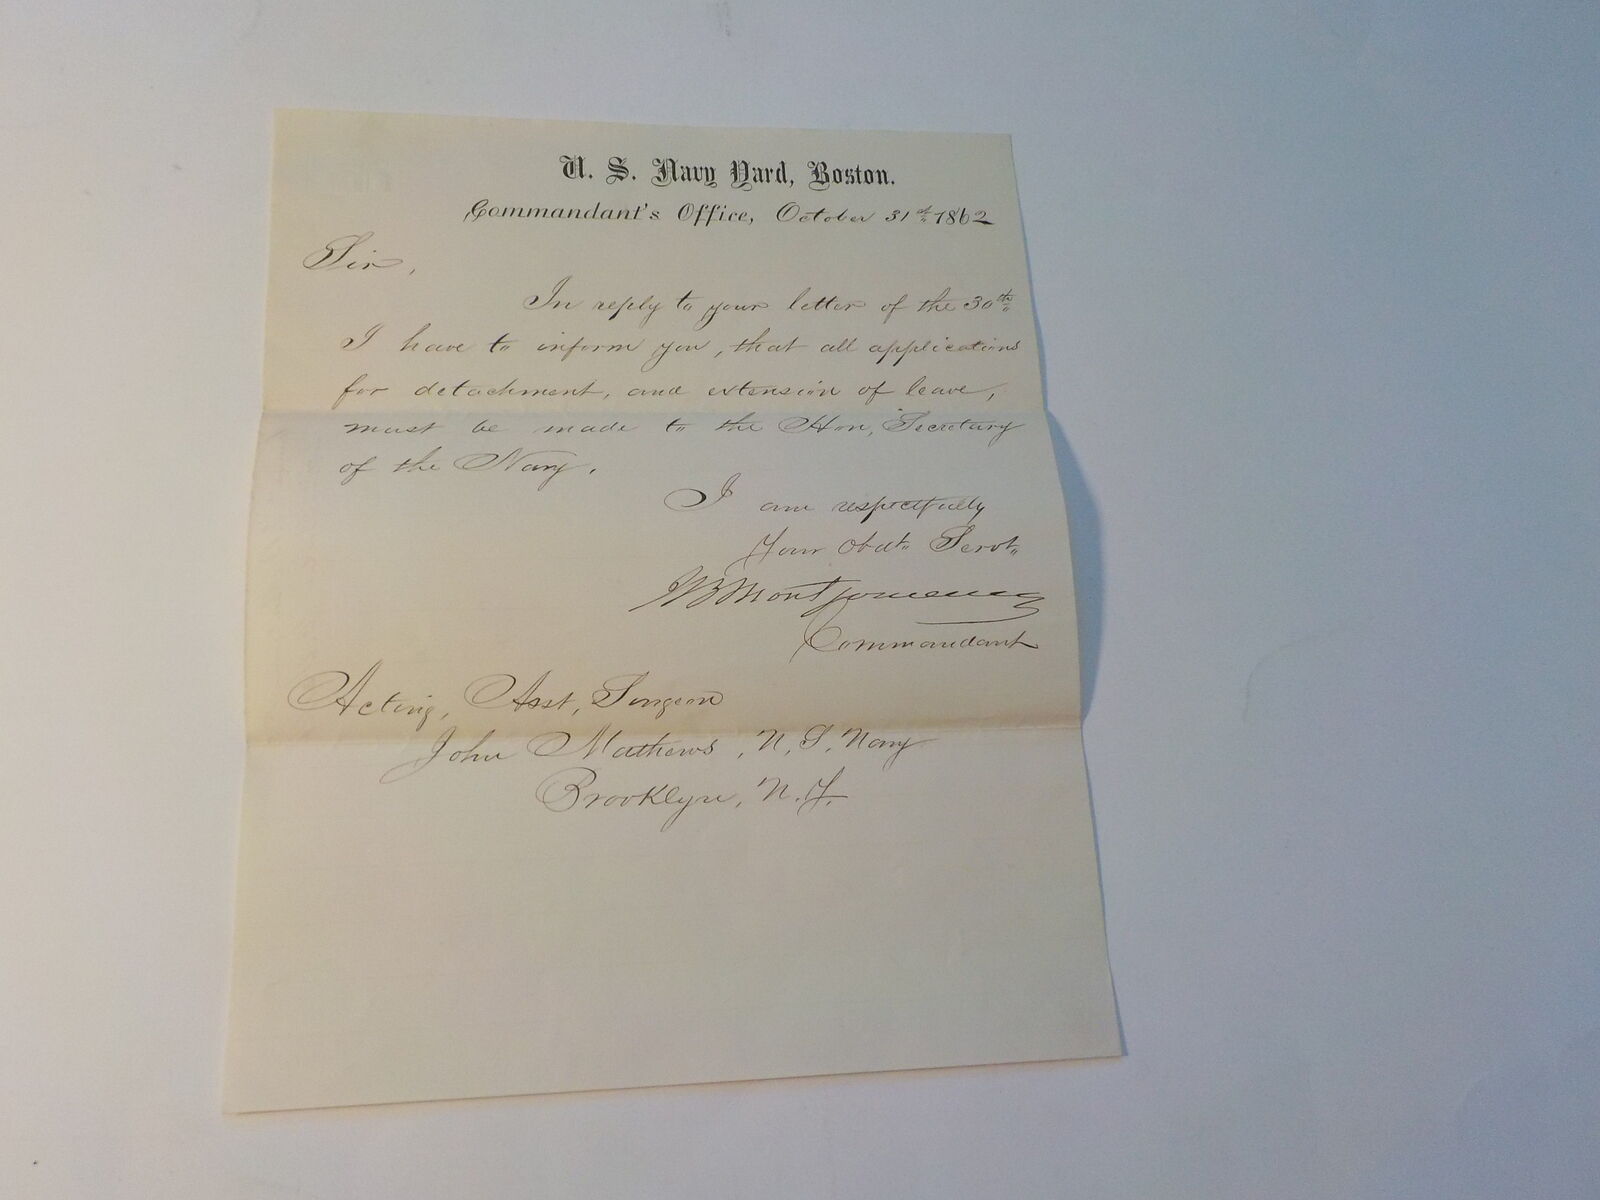 U. S. Navy Yard, Boston.
Commandant's Office, October 31st 1862
Sir,
In reply to your letter of the 30th
I have to inform you, that all applications
for detachment, and extension of leave,
must be made to the Hon, Secretary
of the Navy.
I am respectfully
Your Obdt. Servt.
WBMontgomery
Commandant
Acting, Asst, Surgeon
John Mathews, U, S, Navy
Brooklyn, N. Y.